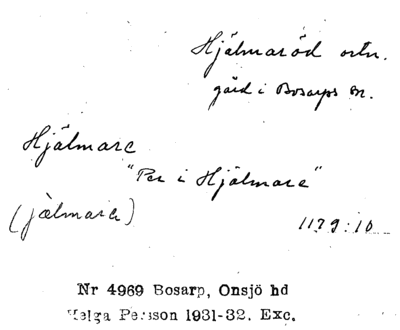 Hjälmaröd ortn.
gård i Bosarps sn.
Hjälmare
"Per i Hjälmare"
(jälmara)
1179:10
Nr 4969 Bosarp, Onsjö hd
Helga Persson 1931-32. Exc.